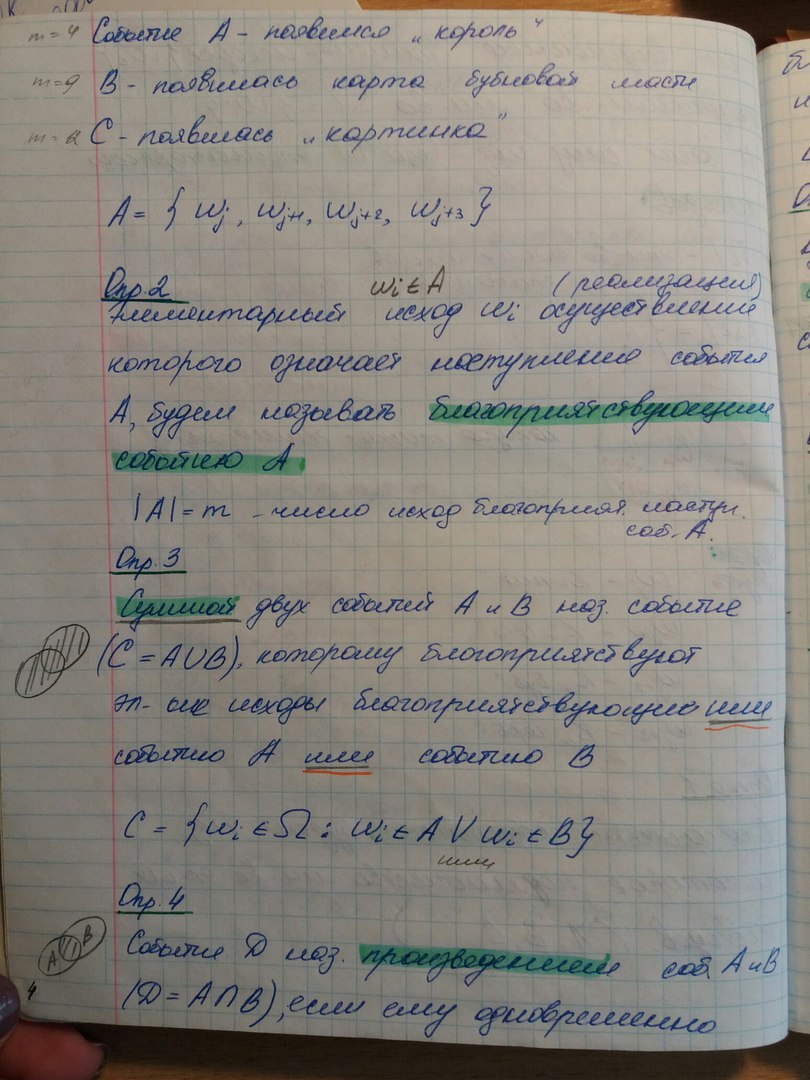 m=4 Событие A - появился „король"
m=9 B - появилась карта бубновой масти
C - появилась „картинка"
A = { wj, wj+1, wj+2, wj+3 }
Опр.2 wi ∈ A (реализация)
Элементарный исход wi осуществление
которого означает наступление события
A, будем называть благоприятствующим
событию A
|A| = m - число исход благоприят. наступ.
соб. A.
Опр.3
Суммой двух событий A и B наз. событие
(C = A∪B), которому благоприятствуют
эл-ые исходы благоприятствующие или
событию A или событию B
C = {wi ∈ Ω : wi ∈ A ∨ wi ∈ B}
или
Опр.4
A B Событие D наз. произведением соб. A и B
4 (D = A∩B), если ему одновременно